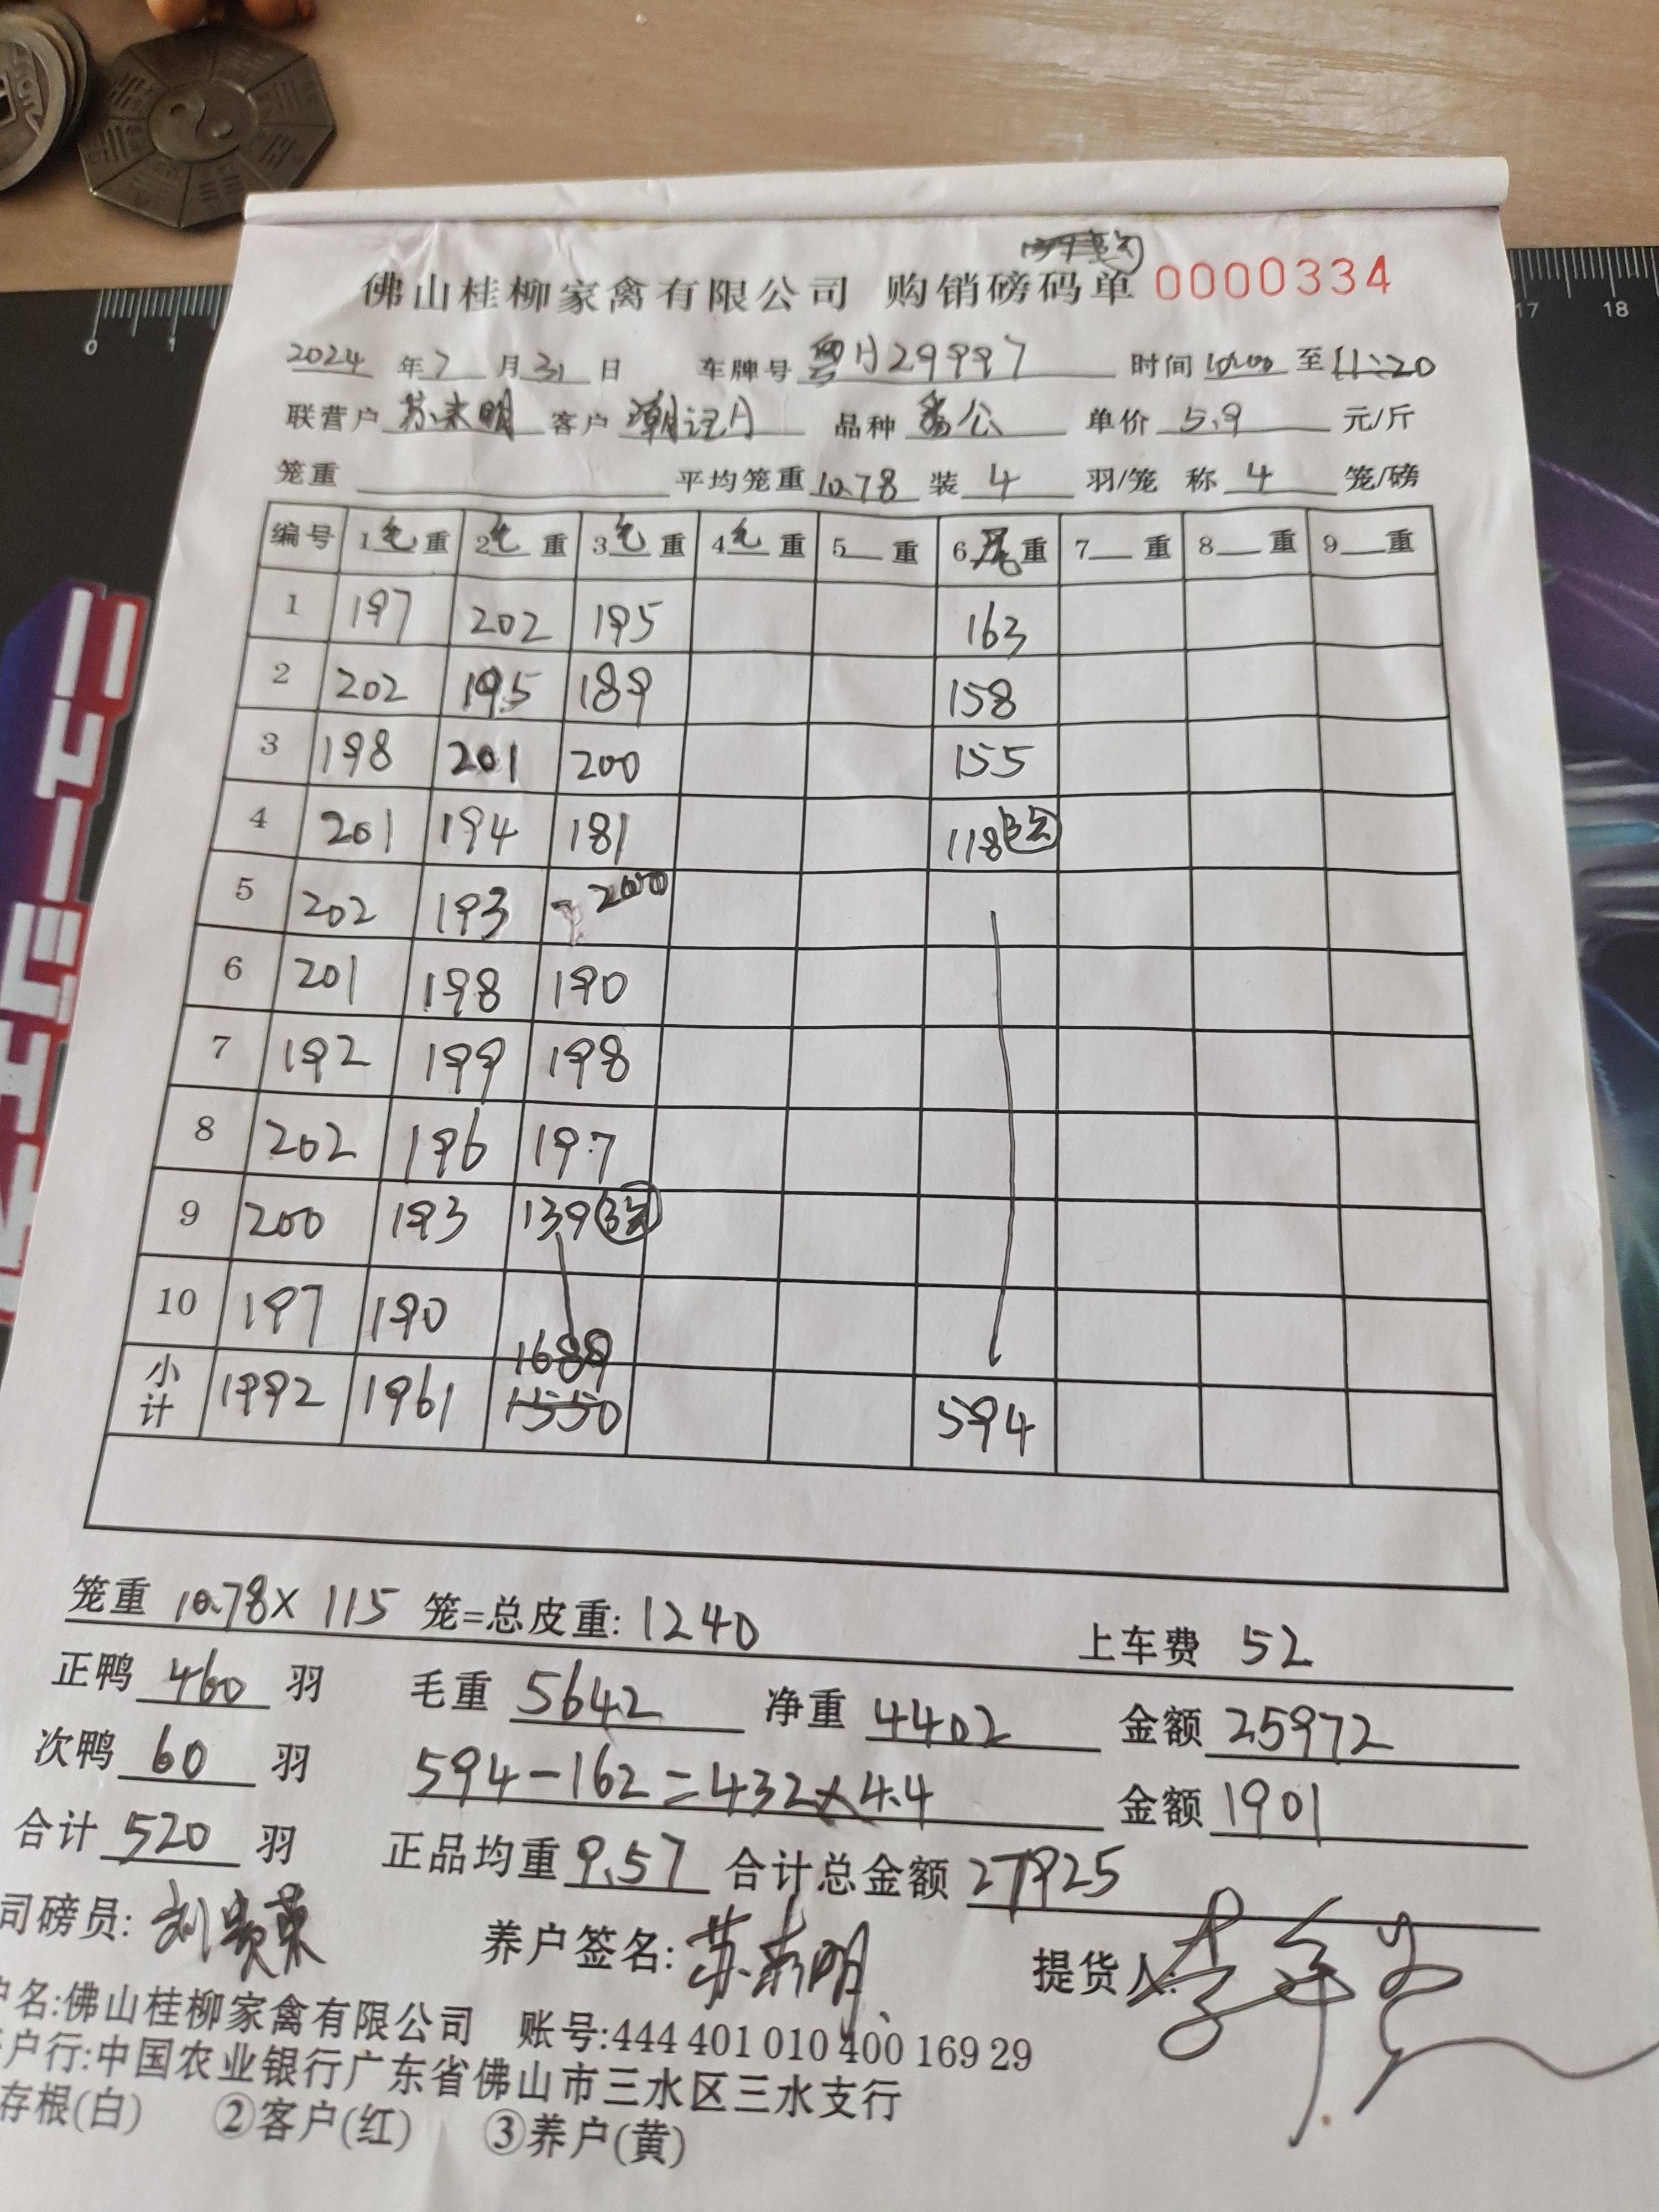 佛山桂柳家禽有限公司 购销磅码单 0000334
2024 年 7 月 31 日 车牌号 粤H29997 时间 10:00 至 11:20
联营户 苏来明 客户 潮记A 品种 公 单价 5.9 元/斤
笼重 平均笼重 10.78 装 4 羽/笼 称 4 笼/磅
编号 1毛重 2毛重 3毛重 4毛重 5 重 6 重 7 重 8 重 9 重
1 197 202 195 163
2 202 195 189 158
3 198 201 200 155
4 201 194 181 118 3笼
5 202 193 200
6 201 198 190
7 192 199 198
8 202 196 197
9 200 193 139 3笼
10 197 190
1689
小计 1992 1961 1550 594
笼重 10.78× 115 笼=总皮重: 1240 上车费 52
正鸭 460 羽 毛重 5642 净重 4402 金额 25972
次鸭 60 羽 594-162=432×4.4 金额 1901
合计 520 羽 正品均重 9.57 合计总金额 27925
司磅员: 刘贵荣 养户签名: 苏来明 提货人:
户名:佛山桂柳家禽有限公司 账号:444 401 010 400 169 29
户行:中国农业银行广东省佛山市三水区三水支行
存根(白) ②客户(红) ③养户(黄)
17 18
0 1